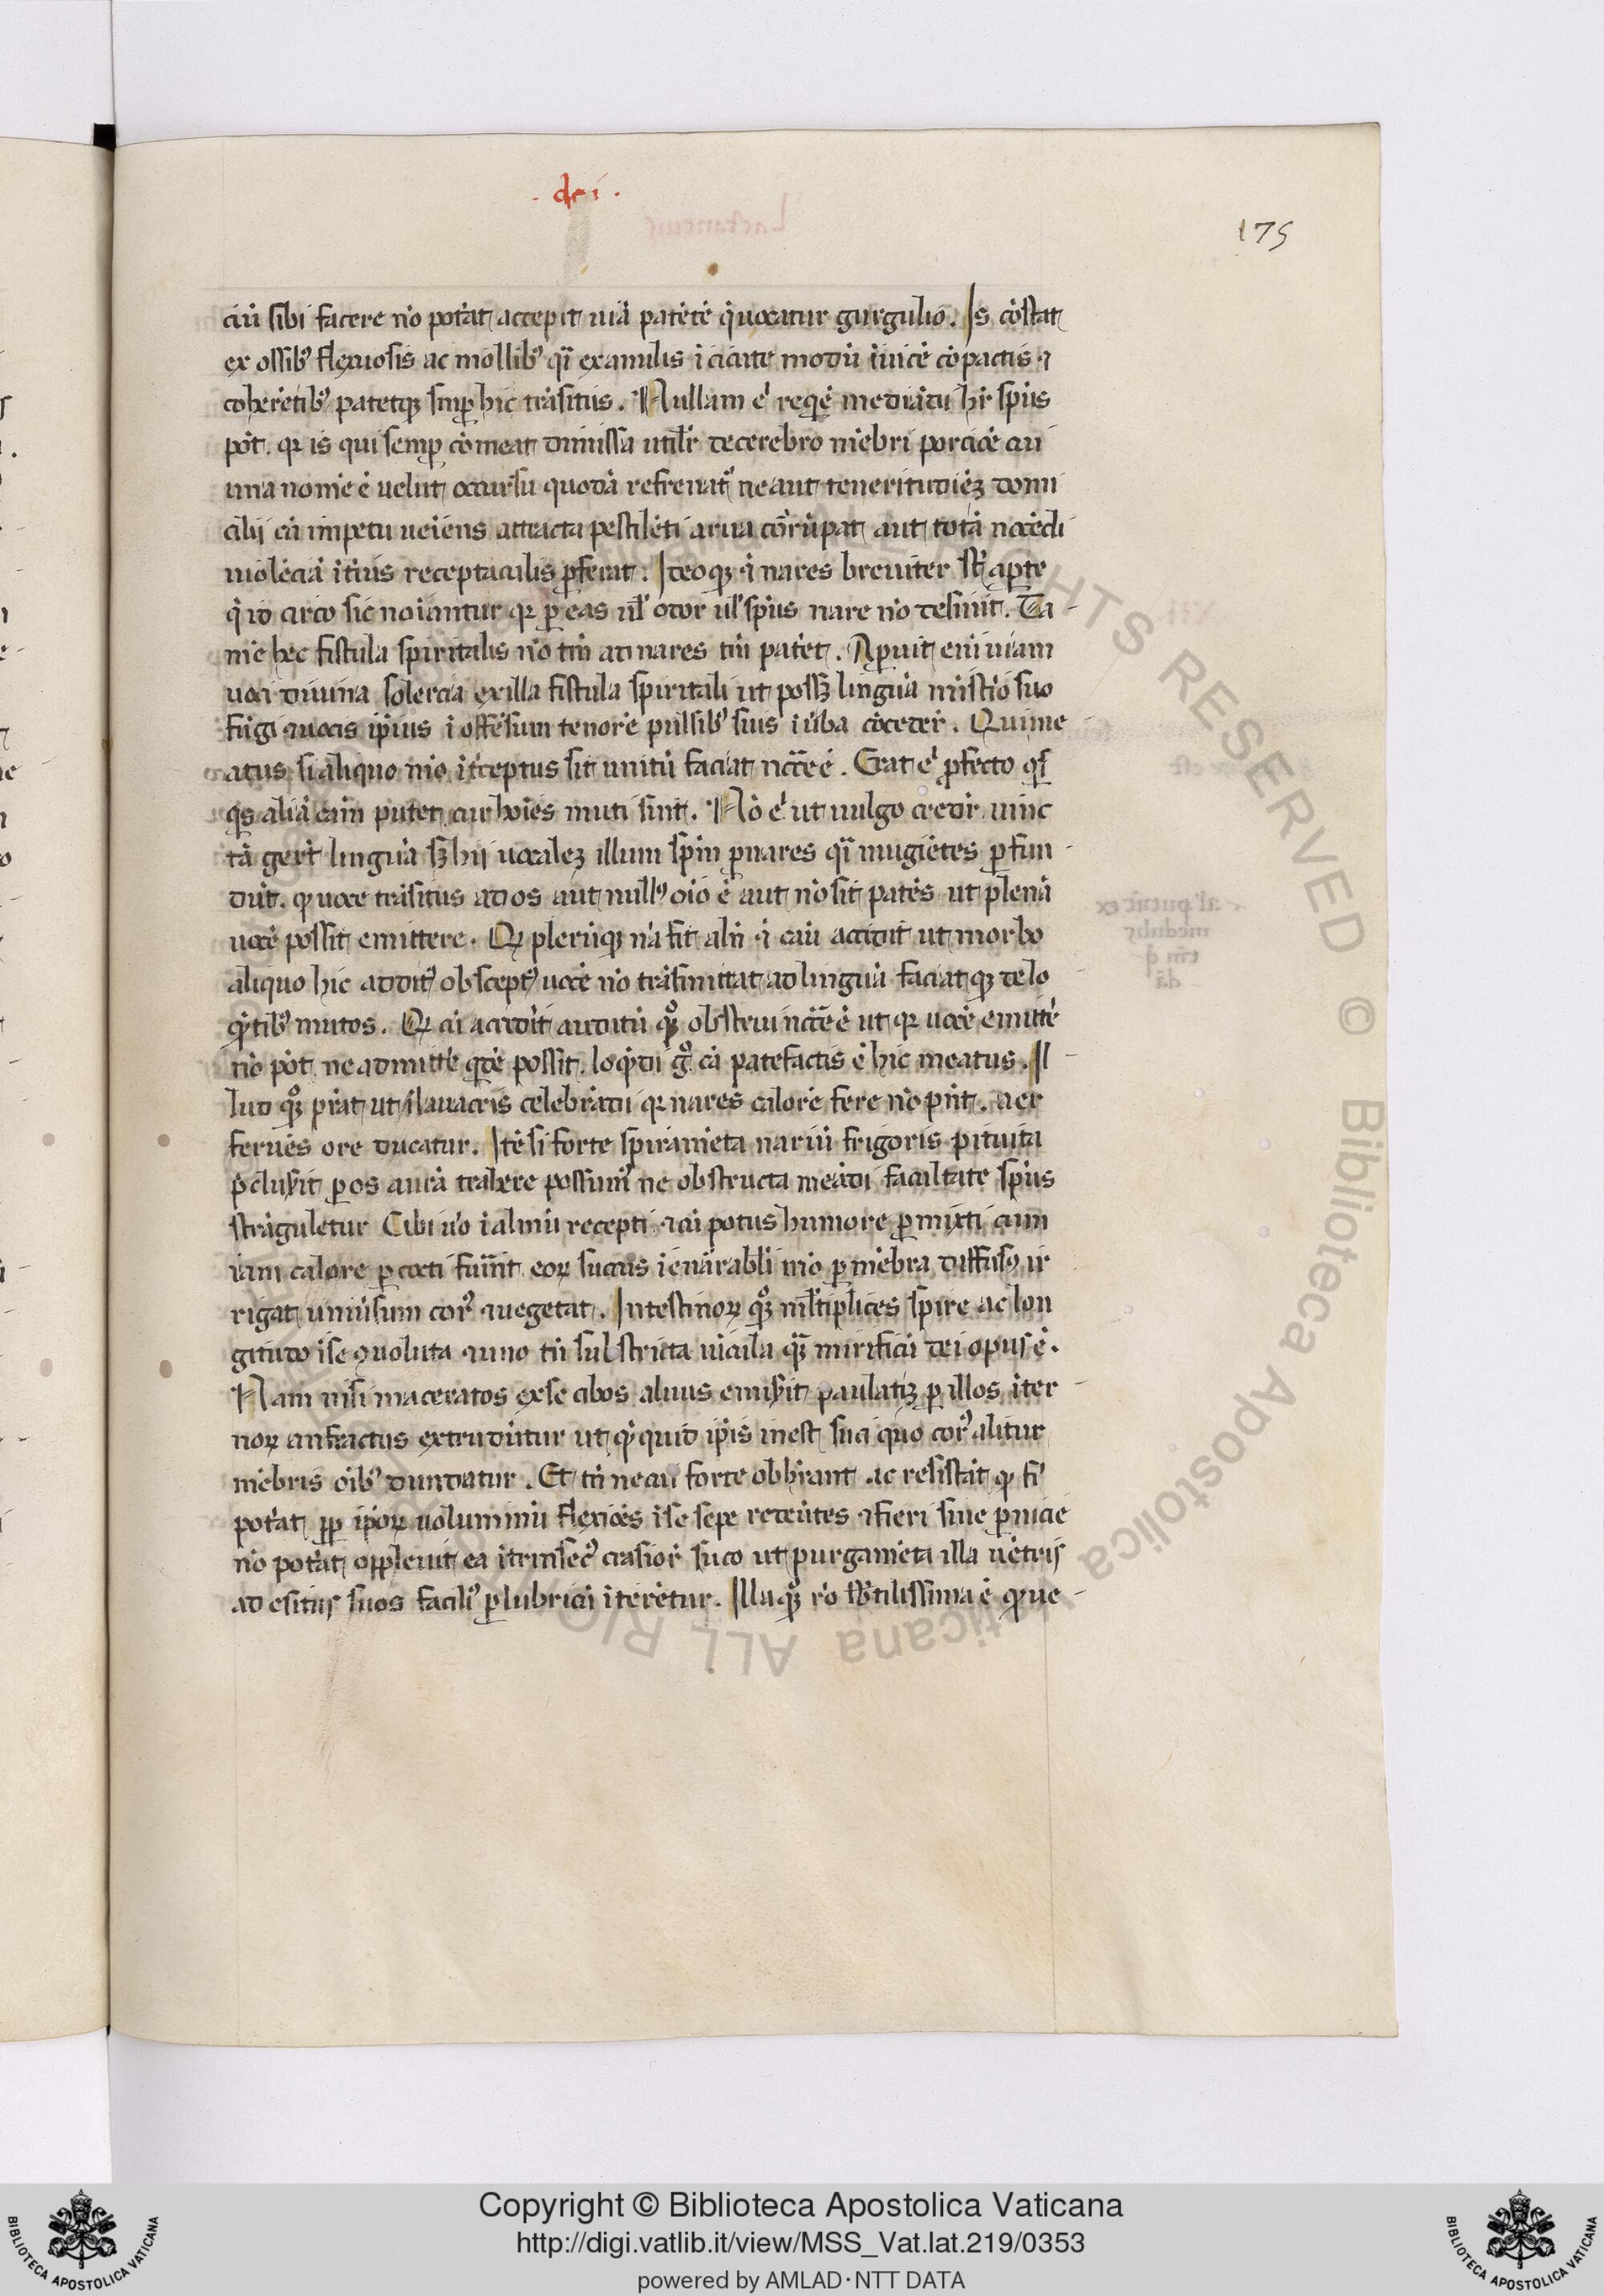 . dei .
175
ciū sibi facere nō pot̄at accepit uiā patētē q̄ uocatur gurgulio. Is cōstat
ex ossibꝫ flexuosis ac mollibꝫ q̄i ex anulis ī cicute modū īuicē cōpactis ⁊
coherētibꝫ patetqꝫ semꝑ hic trāsitus. Nullam .n. reqiē meādi hr̄e spūs
pōt. qꝛ is qui semꝑ cōmeat dimissa utilr̄ de cerebro mēbri porcōē cui
uua nomē ē uelut occursu quodā refrenat᷑ ne aut teneritudiēꝫ domi
cilij cū impetu ueiens attracta pestilēti aura cōrūpat aut totā nocēdi
uiolēciā ītius receptaculis ꝑferat. Ideoqꝫ ⁊ nares breuiter st̄ aꝑte
q̄ idcirco sic noiantur qꝛ ꝑ eas ul̄ odor ul̄ spūs nare nō desinit. Ta
mē hec fistula spiritalis nō tm̄ ad nares tm̄ patet. Aꝑuit eni uiam
uoci diuina solercia ex illa fistula spiritali ut possꝫ linguā mīst̄io suo
fūgi ⁊ uocis ip̄ius ī offēsum tenorē pulsibꝫ suis ī ūba cōceder̄. Qui me
atus si aliquo mō ītceptus sit mutū faciat nc̄c̄e ē. Errat .n. ꝓfecto qs
qs aliā cām putet cur hoīes muti sint. Nō .n. ut uulgo credit̄ uinc
tā gerūt linguā sꝫ hij uocalēꝫ illum spm̄ ꝑ nares q̄i mugiētes ꝓfun
dūt. qꝛ uoce trāsitus ad os aut nullꝰ oīo ē aut nō sit patēs ut plenā
uocē possit emittere. Qꝛ plerūqꝫ nā fit alīn ⁊ cāu accidit ut morbo
aliquo hic additꝰ obsceptꝰ uocē nō trāsmittat ad linguā faciatqꝫ de lo
quētibꝫ mutos. Qꝛ cū accidit auditū quoqꝫ obstrui nc̄c̄e ē ut qꝛ uocē emittē
nō pōt ne admittē qdē possit. loqndi gͦ cā patefactus ē hic meatus. Il
lud quoqꝫ pr̄at ut ī lauacris celebrādi qꝛ nares calorē fere nō pn̄t. aer
feruēs ore ducatur. Itē si forte spiramēta nariū frigoris pituita
p̄cluxit ꝑ os aurā trahere possumꝰ ne obstructa meādi facultate spūs
strāguletur Cibi uͦo ī aluū recepti ⁊ cū potus humore ꝑmixti cum
iam calore ꝑcocti fuīnt eoꝝ succus īenarrabli mō ꝑ mēbra diffusꝰ ir
rigat uniūsum corꝰ ⁊ uegetat. Intestinoꝝ quoqꝫ ml̄tiplices spire ac lon
gitudo ī se ꝯuoluta ⁊ uno tn̄ substricta uīculo q̄ mirificū dei opus ē.
Nam nisi maceratos ex se cibos aluus emisit paulatīꝫ ꝑ illos īter
noꝝ anfractus extrudūtur ut quicquid ip̄is inest suci quo corꝰ alitur
mēbris oībꝫ diuidatur. Et tn̄ necui forte obhērant ac resistāt qꝛ fī
pot̄at ꝓp ip̄oꝝ uoluminū flexiōēs ī se sepe redeūtes ⁊ fieri sine ꝑnicie
nō pot̄at oppleuit ea ītrinsecꝰ crasior̄ suco ut purgamēta illa uētris
ad exitus suos faciliꝰ ꝑ lubricū īterētur. Illa quoqꝫ rō sb̄tilissima ē qꝛ ue
Copyright © Biblioteca Apostolica Vaticana
http://digi.vatlib.it/view/MSS_Vat.lat.219/0353
powered by AMLAD·NTT DATA
BIBLIOTECA APOSTOLICA VATICANA
BIBLIOTECA APOSTOLICA VATICANA